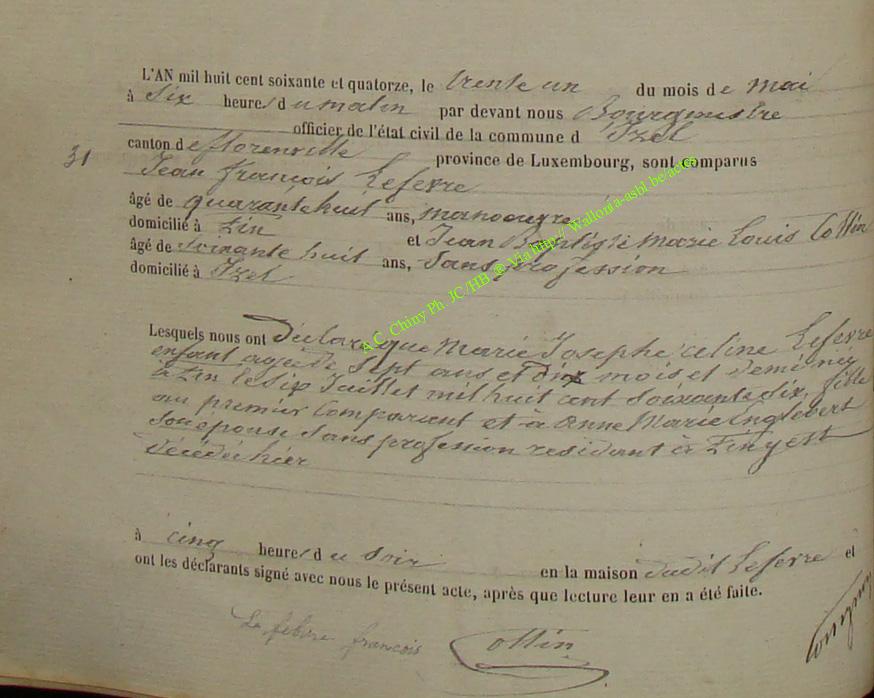 L'AN mil huit cent soixante et quatorze, le trente un du mois de mai
à Six heures du matin par devant nous Bourgmestre
officier de l'état civil de la commune d Izel
31 canton de florenville province de Luxembourg, sont comparus
Jean françois Lefevre
âgé de quarante huit ans, manoeuvre
domicilié à Pin et Jean Baptiste Marie Louis Collin
âgé de soixante huit ans, Sans profession
domicilié à Izel
A.C. Chiny Ph JC/HB @ Via http:// Wallonia-asbl.be/actes
Lesquels nous ont Déclaré que Marie Josephe Celine Lefevre
enfant agée de Sept ans et dix mois et demi née
à Pin le Six Juillet mil huit cent Soixante Six, fille
au premier Comparant et à Anne Marie Englebert
Son epouse Sans profession residant à Pin y est
Décédée hier
à cinq heures du Soir en la maison dudit Lefevre et
ont les déclarants signé avec nous le présent acte, après que lecture leur en a été faite.
Le febvre françois Collin